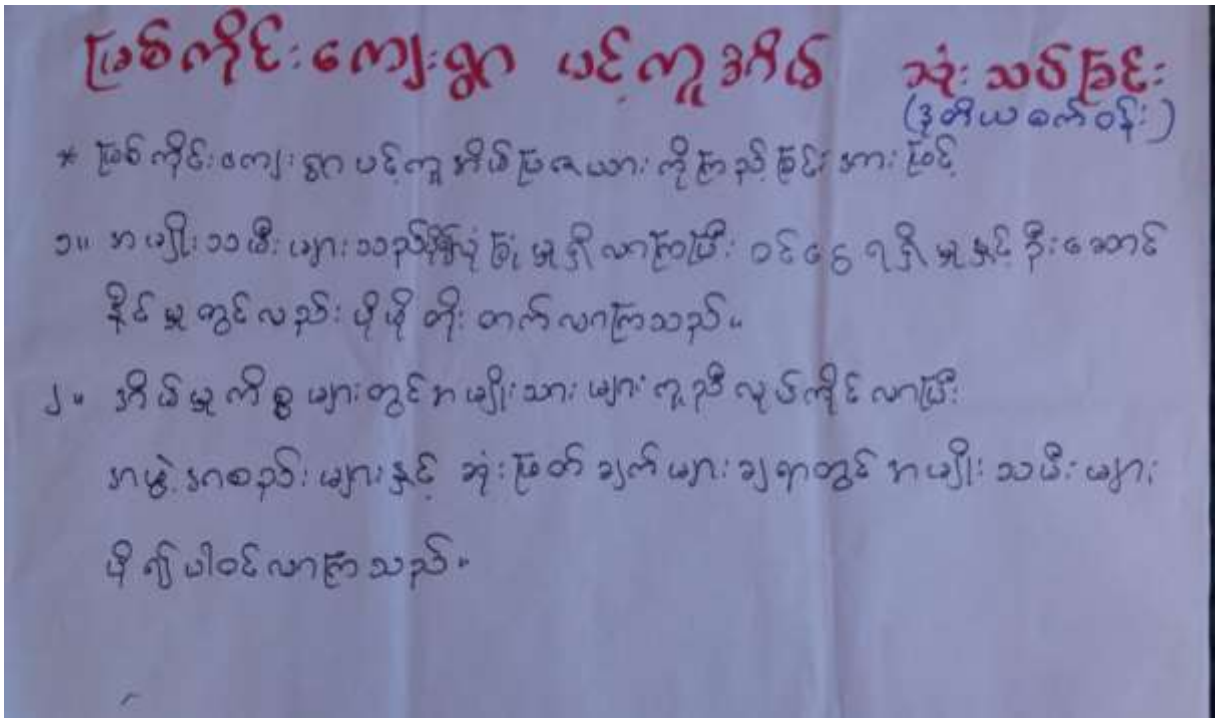 ဖြစ်ကိုင်းကျေးရွာ ပင့်ကူအိမ် သုံးသပ်ခြင်း
(ဒုတိယစက်ဝန်း)
* ဖြစ်ကိုင်းကျေးရွာပင့်ကူအိမ်ပြဇယားကိုကြည့်ခြင်းအားဖြင့်
၁။ အမျိုးသမီးများသည် ယုံကြုံမှုရှိလာကြပြီး ဝင်ငွေရရှိမှုနှင့် ဦးဆောင်
နိုင်မှုတွင်လည်း ပိုမိုတိုးတက်လာကြသည်။
၂။ အိမ်မှုကိစ္စများတွင်အမျိုးသားများကူညီလုပ်ကိုင်လာပြီး
အဖွဲ့အစည်းများနှင့် ဆုံးဖြတ်ချက်များချရာတွင် အမျိုးသမီးများ
ပို၍ပါဝင်လာကြသည်။